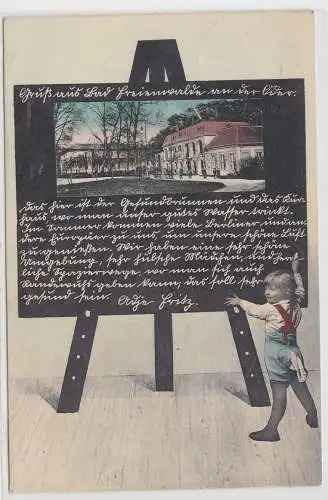 Gruß aus Bad Freienwalde an der Oder.
das hier ist der Gesundbrunnen und das Kur-
haus wo man unser gutes Wasser trinkt.
Im Sommer kommen viele Berliner und an-
dere Europäer zu uns, um unsere schöne Luft
zu genießen. Wir haben eine sehr schöne
Umgebung, sehr hübsche Mädchen, und herr-
liche Spazierwege, wo man sich auch
Randewuhs geben kann, das soll sehr
gesund sein. Adje Fritz.